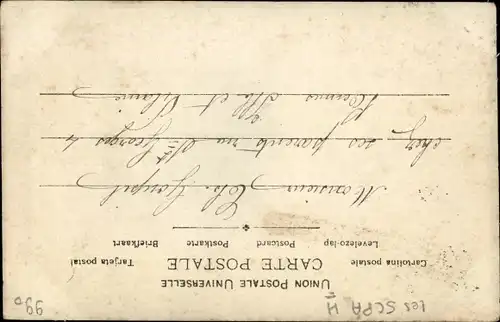 UNION POSTALE UNIVERSELLE
CARTE POSTALE
Cartolina postale Tarjeta postal
Levelezo-lap Postcard Postkarte Briefkaart
Monsieur Ch. Goupil
chez ses parents rue St Georges 4
Rennes Ille et Vilaine
Les SCPA H
99D